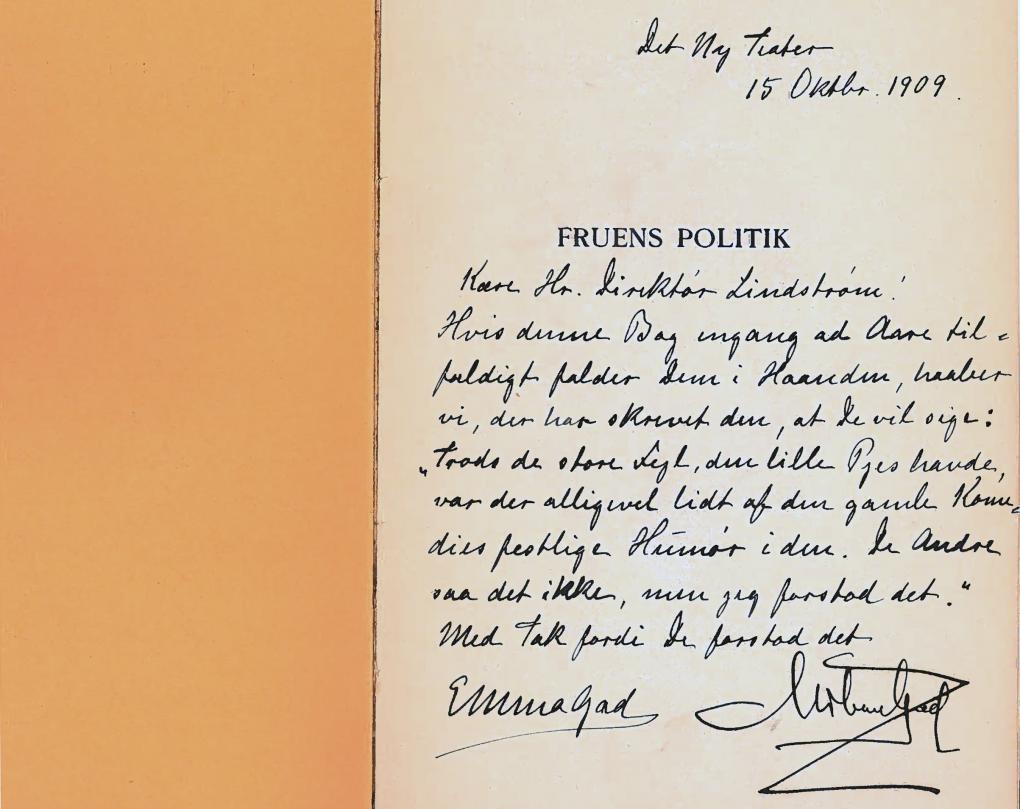 Det Ny Teater
15 Oktbr. 1909.
FRUENS POLITIK
Kære Hr. Direktør Lindstrøm!
Hvis denne Bog engang ad Aare til=
fældigt falder Dem i Haanden, haaber
vi, der har skrevet den, at De vil sige:
„Trods de store Fejl, den lille Pjes havde,
var der alligevel lidt af den gamle Kome=
dies festlige Humør i den. De Andre
saa det ikke, men jeg forstod det."
Med Tak fordi De forstod det
Emma Gad
Urban Gad